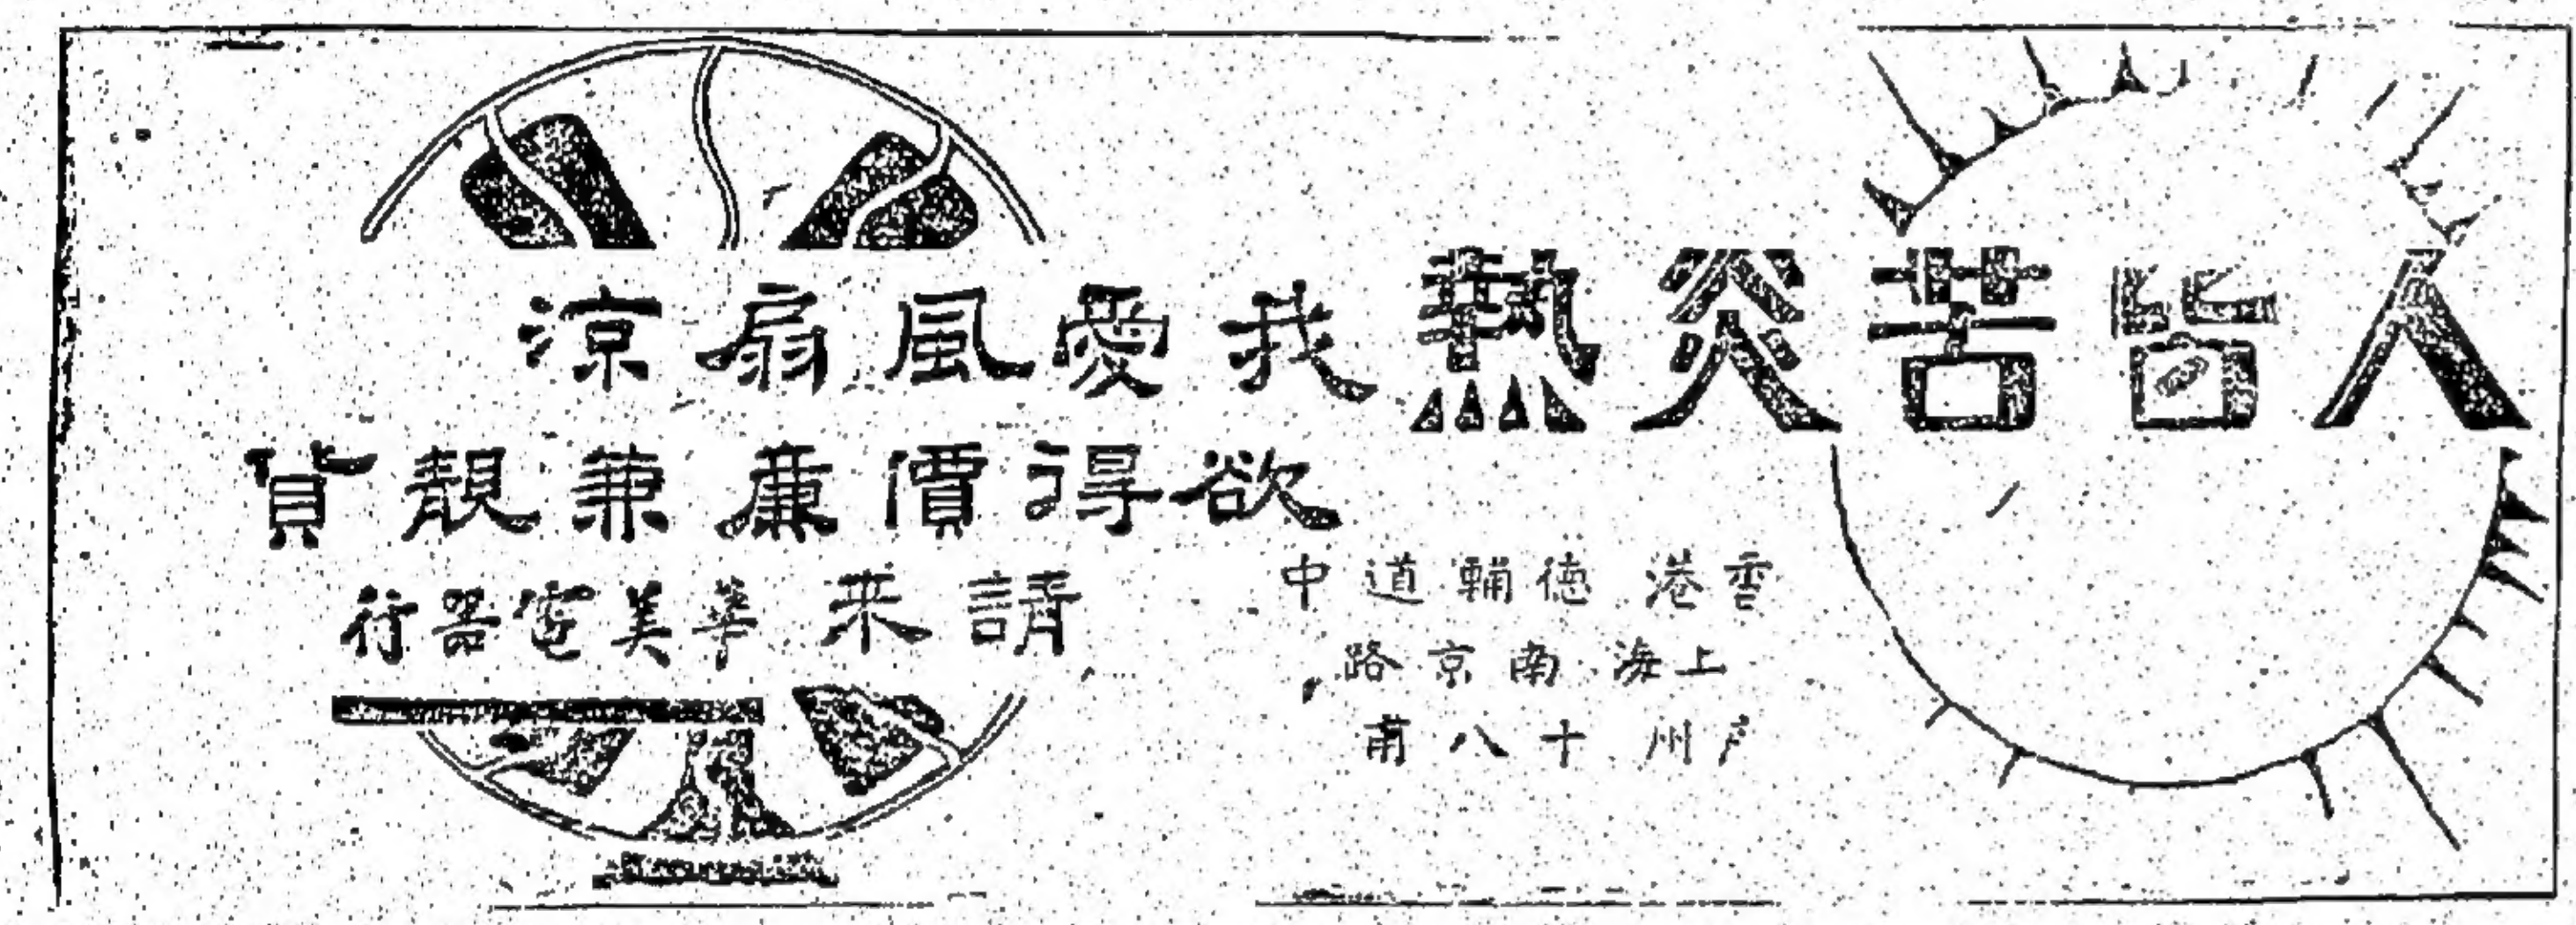 人皆苦炎熱我愛風扇涼
欲得價廉兼靚貨
請来華美電器行
香港德輔道中
上海南京路
廣州十八甫